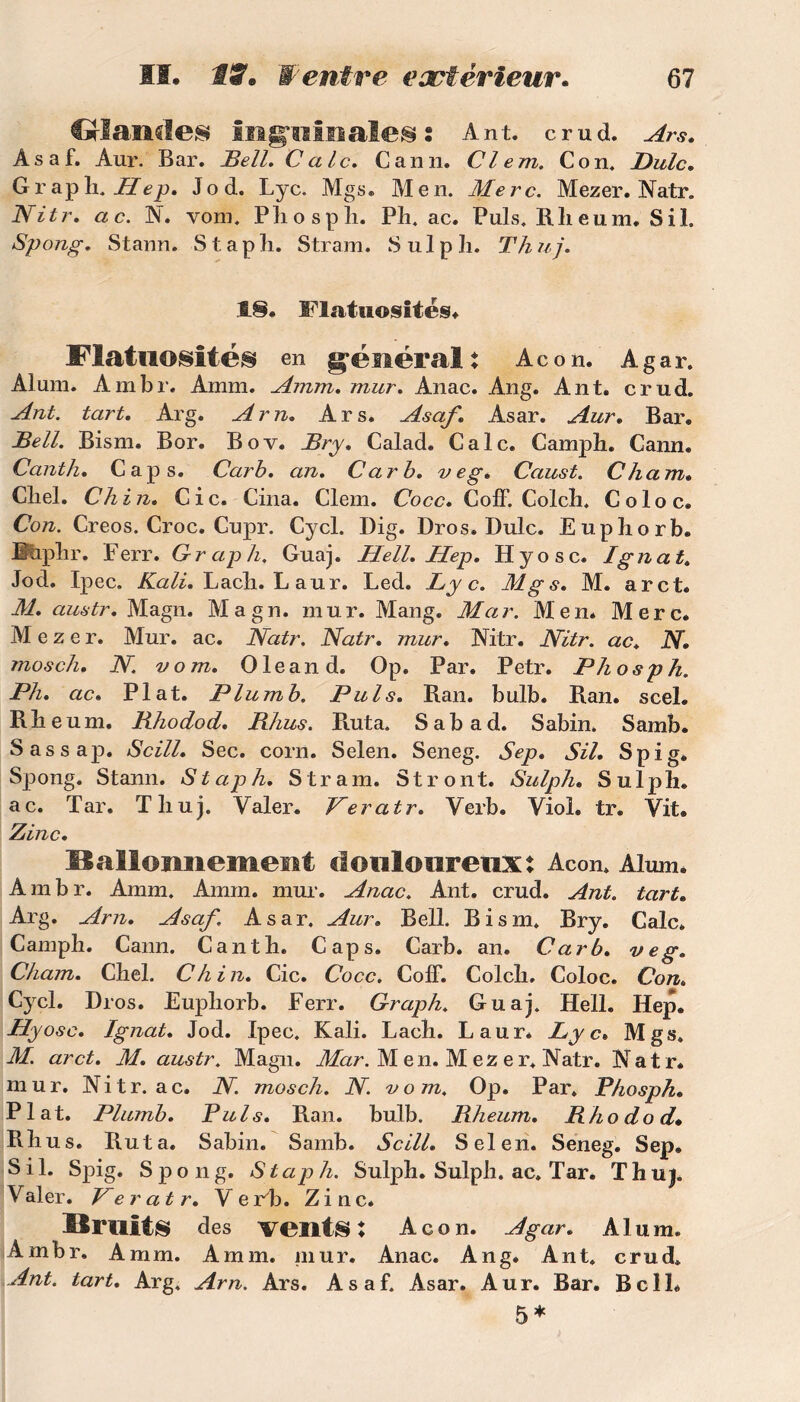 II. 17. Ventre extérieur. 67
Glandes inguinales: Ant. crud. Ars.
Asaf. Aur. Bar. Bell. Calc. Cann. Clem. Con. Dulc.
Graph. Hep. Jod. Lyc. Mgs. Men. Merc. Mezer. Natr.
Nitr. ac. N. vom. Phosph. Ph. ac. Puls. Rheum. Sil.
Spong. Stann. Staph. Stram. Sulph. Thuj.
18. Flatuosités.
Flatuosités en général: Acon. Agar.
Alum. Ambr. Amm. Amm. mur. Anac. Ang. Ant. crud.
Ant. tart. Arg. Arn. Ars. Asaf. Asar. Aur. Bar.
Bell. Bism. Bor. Bov. Bry. Calad. Calc. Camph. Cann.
Canth. Caps. Carb. an. Carb. veg. Caust. Cham.
Chel. Chin. Cic. Cina. Clem. Cocc. Coff. Colch. Coloc.
Con. Creos. Croc. Cupr. Cycl. Dig. Dros. Dulc. Euphorb.
Euphr. Ferr. Graph. Guaj. Hell. Hep. Hyosc. Ignat.
Jod. Ipec. Kali. Lach. Laur. Led. Lyc. Mgs. M. arct.
M. austr. Magn. Magn. mur. Mang. Mar. Men. Merc.
Mezer. Mur. ac. Natr. Natr. mur. Nitr. Nitr. ac. N.
mosch. N. vom. Oleand. Op. Par. Petr. Phosph.
Ph. ac. Plat. Plumb. Puls. Ran. bulb. Ran. scel.
Rheum. Rhodod. Rhus. Ruta. Sabad. Sabin. Samb.
Sassap. Scill. Sec. corn. Selen. Seneg. Sep. Sil. Spig.
Spong. Stann. Staph. Stram. Stront. Sulph. Sulph.
ac. Tar. Thuj. Valer. Veratr. Verb. Viol. tr. Vit.
Zinc.
Ballonnement douloureux: Acon. Alum.
Ambr. Amm. Amm. mur. Anac. Ant. crud. Ant. tart.
Arg. Arn. Asaf. Asar. Aur. Bell. Bism. Bry. Calc.
Camph. Cann. Canth. Caps. Carb. an. Carb. veg.
Cham. Chel. Chin. Cic. Cocc. Coff. Colch. Coloc. Con.
Cycl. Dros. Euphorb. Ferr. Graph. Guaj. Hell. Hep.
Hyosc. Ignat. Jod. Ipec. Kali. Lach. Laur. Lyc. Mgs.
M. arct. M. austr. Magn. Mar. Men. Mezer. Natr. Natr.
mur. Nitr. ac. N. mosch. N. vom. Op. Par. Phosph.
Plat. Plumb. Puls. Ran. bulb. Rheum. Rhodod.
Rhus. Ruta. Sabin. Samb. Scill. Selen. Seneg. Sep.
Sil. Spig. Spong. Staph. Sulph. Sulph. ac. Tar. Thuj.
Valer. Veratr. Verb. Zinc.
Bruits des vents: Acon. Agar. Alum.
Ambr. Amm. Amm. mur. Anac. Ang. Ant. crud.
Ant. tart. Arg. Arn. Ars. Asaf. Asar. Aur. Bar. Bell.
5*